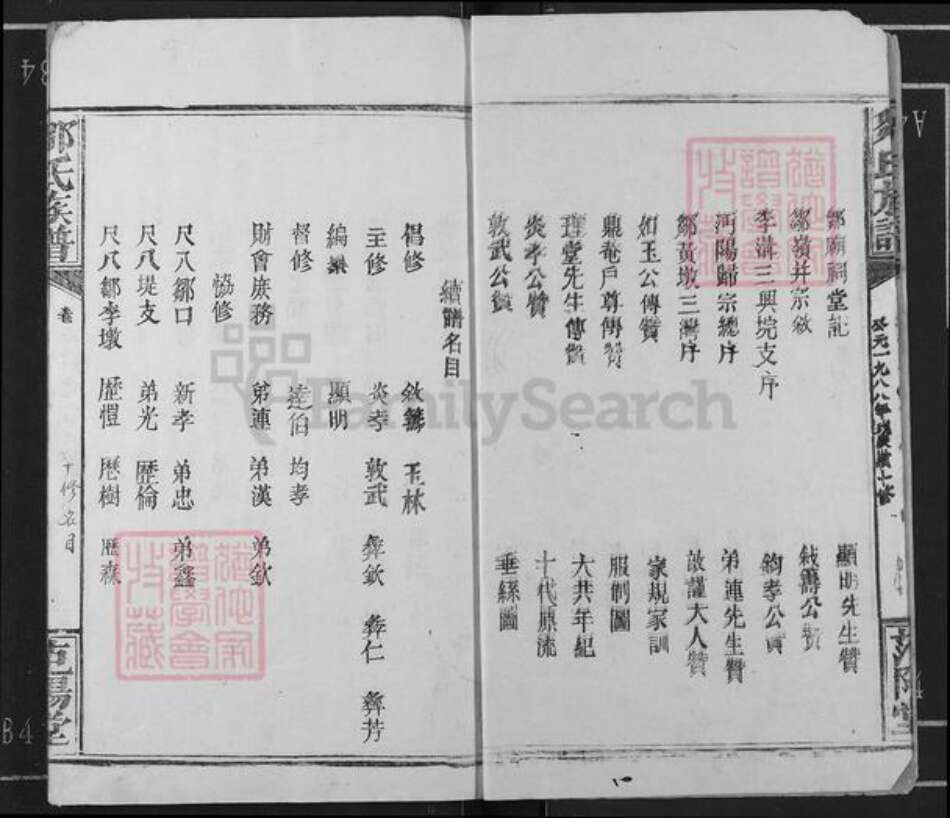 鄒廟祠堂記
鄒嶺并宗敘
李溝三興垸支序
沔陽歸宗總序
鄒黃墩三灣序
如玉公傳贊
鼎菴戶尊傳贊
理堂先生傳贊
炎孝公贊
敦武公贊
顯明先生贊
鈞孝公贊
弟連先生贊
故謹大人贊
家規家訓
服制圖
大共年紀
十代源流
垂絲圖
續譜名目
倡修 玉林
主修 炎孝 敦武 彝欽 彝仁 彝芳
編纂 顯明
督修 達伯 均孝
財會族務 弟連 弟漢 弟欽
協修
尺八鄒口 新孝 弟忠 弟鑫
尺八堤支 弟光 歷倫
尺八鄒李墩 歷愷 歷樹 歷森
鄒氏族譜
卷
十修名目
范陽堂
公元一九八八年戊辰歲七修
FamilySearch
A4
B4